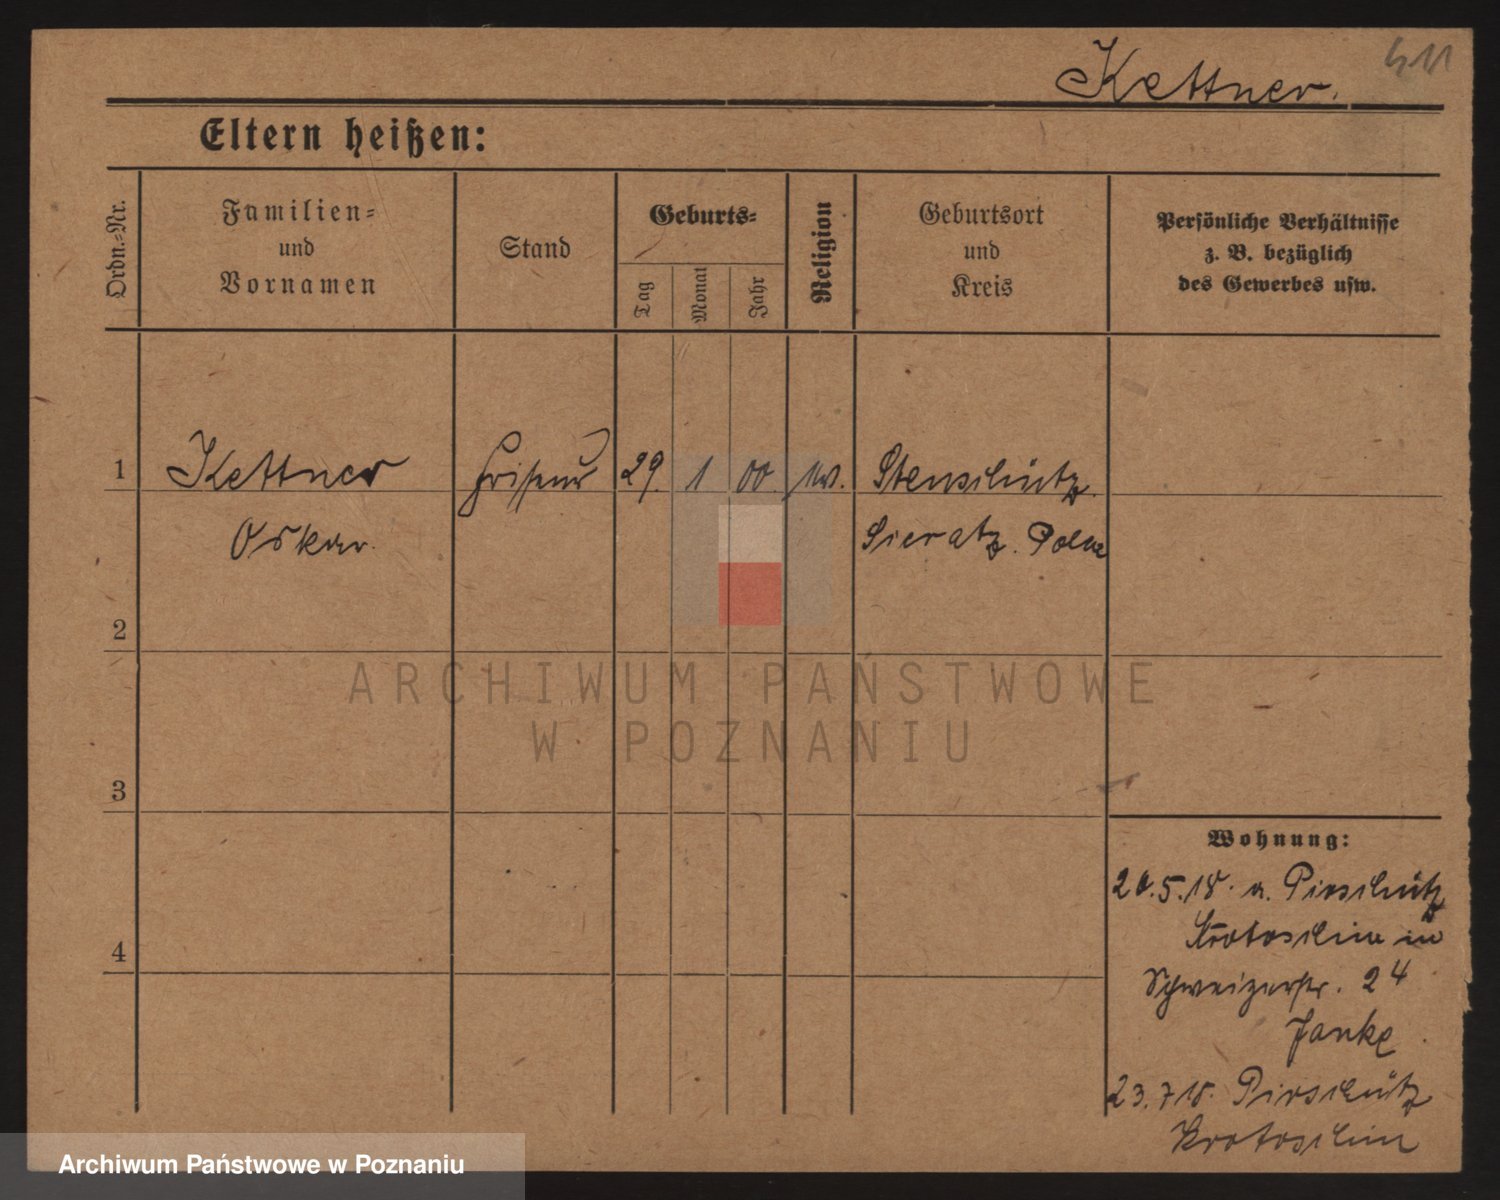 Kettner.
411
Eltern heißen:
Ordn.-Nr.
Familien-
und
Vornamen
Stand
Geburts-
Tag
Monat
Jahr
Religion
Geburtsort
und
Kreis
Persönliche Verhältnisse
z. B. bezüglich
des Gewerbes usw.
1
Kettner
Friseur
29.
1
00
Stenschütz.
Oskar.
Sieratz. Polen
2
ARCHIWUM PAŃSTWOWE
W POZNANIU
3
Wohnung:
20.5.18. a. Pirschütz
Krotoschin in
4
Schweizerstr. 24
Janke
23.7.18. Pirschütz
Krotoschin
Archiwum Państwowe w Poznaniu